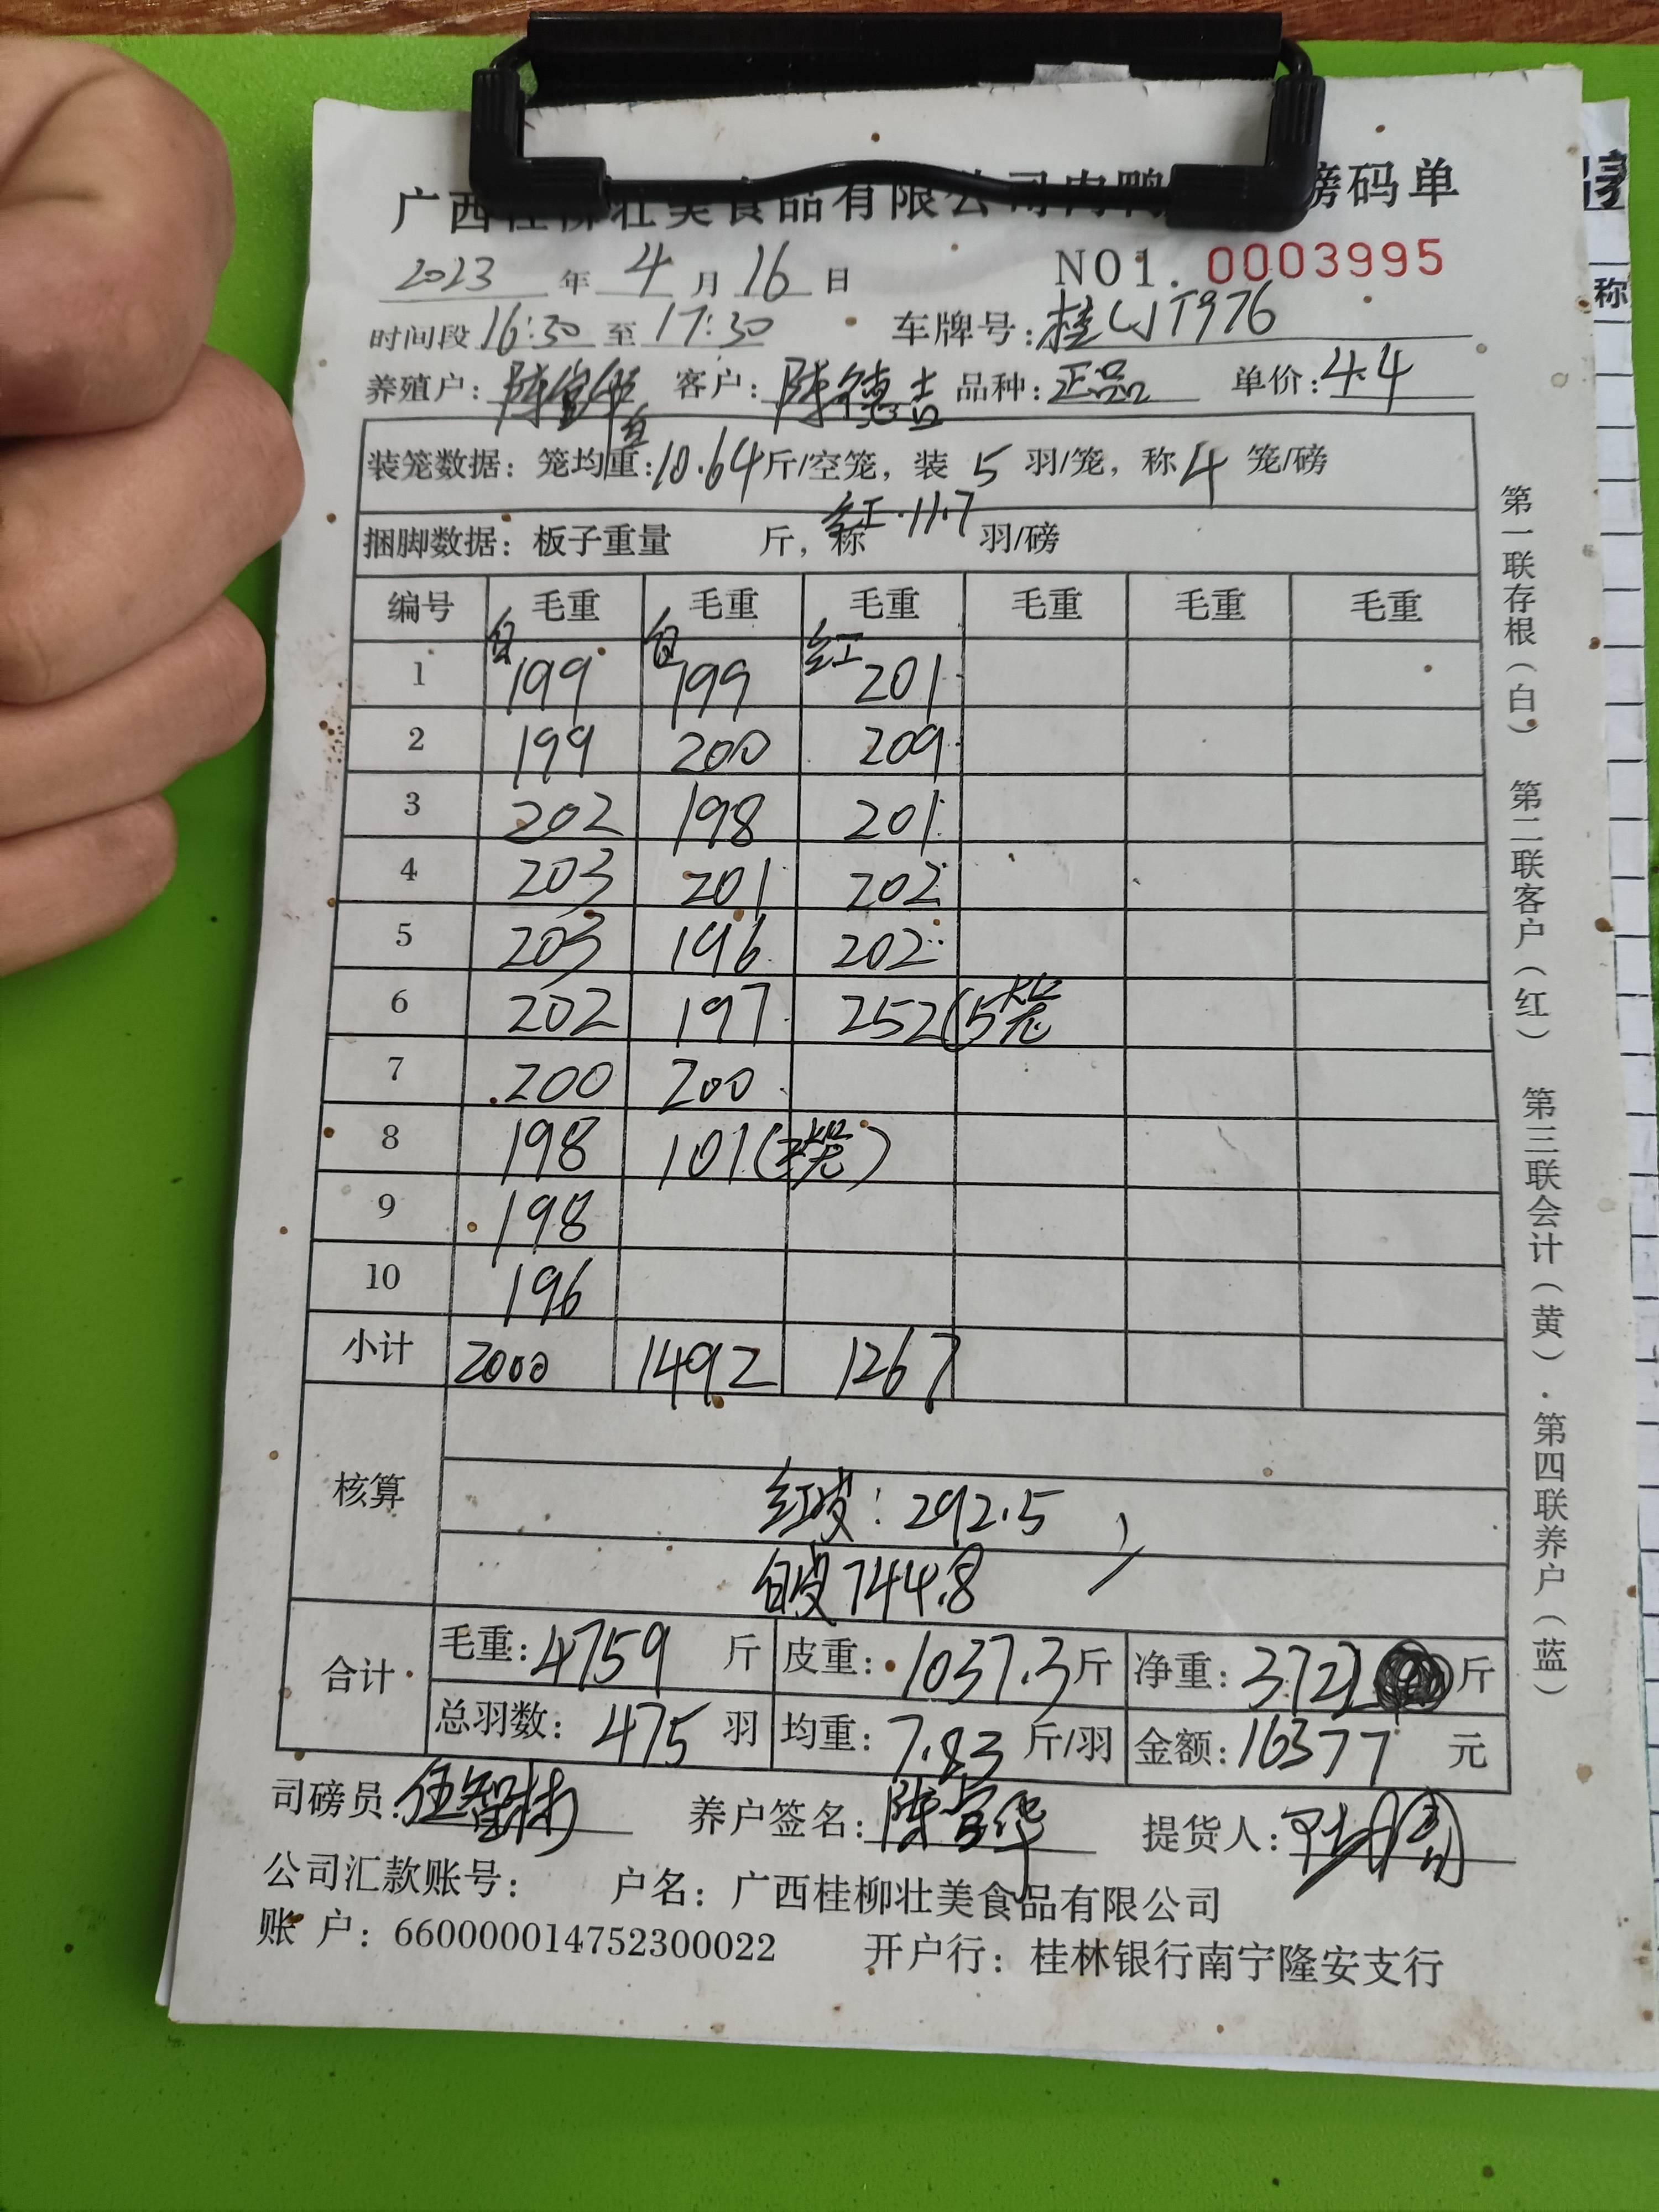 广西桂柳壮美食品有限公司肉鸭 磅码单
2023 年 4 月 16 日 NO1. 0003995
时间段 16:30 至 17:30 车牌号: 桂 T976
养殖户: 陈 客户: 陈德吉 品种: 正品 单价: 4.4
白
装笼数据: 笼均重: 10.64 斤/空笼, 装 5 羽/笼, 称 4 笼/磅
红.11.7
捆脚数据: 板子重量 斤, 称 羽/磅
编号 毛重 毛重 毛重 毛重 毛重 毛重
1 白 199 白 199 红 201
2 199 200 209
3 202 198 201
4 203 201 202
5 203 196 202
6 202 197 252(5笼
7 200 200
8 198 101(2笼)
9 198
10 196
小计 2000 1492 1267
核算
红皮: 292.5
白皮 744.8
合计 毛重: 4759 斤 皮重: 1037.3 斤 净重: 3721 斤
总羽数: 475 羽 均重: 7.83 斤/羽 金额: 16377 元
司磅员: 伍智 养户签名: 陈 提货人:
公司汇款账号: 户名: 广西桂柳壮美食品有限公司
账 户: 660000014752300022 开户行: 桂林银行南宁隆安支行
第一联存根(白) 第二联客户(红) 第三联会计(黄). 第四联养户(蓝)
称